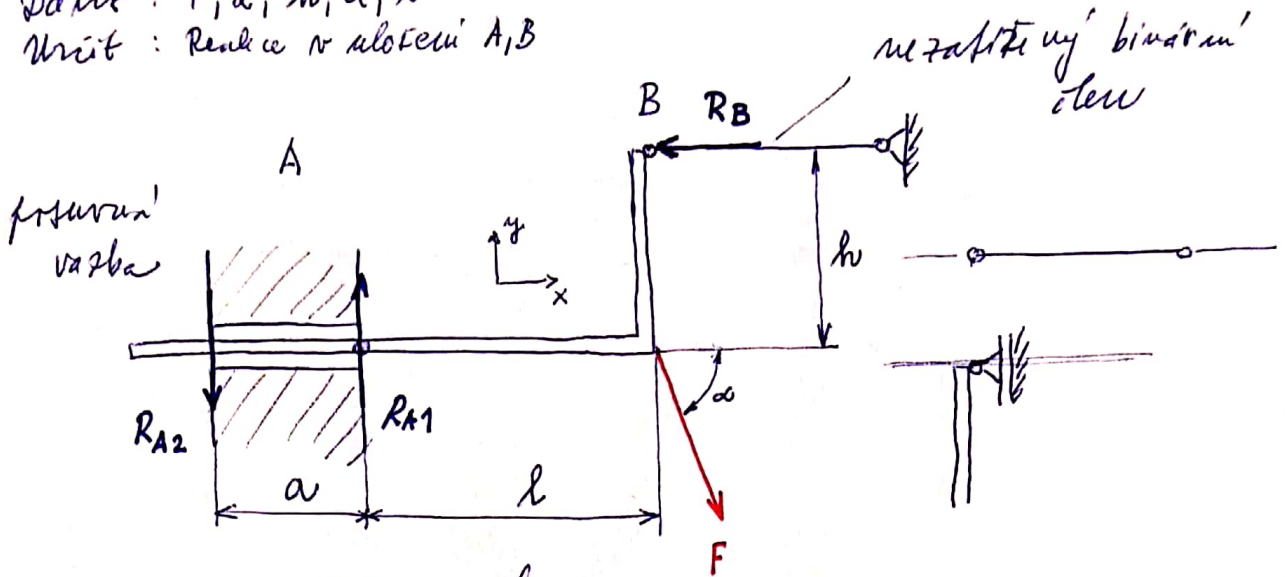 Určit : Reakce v uložení A,B
nezatížený binární
člen
B
R_B
A
posuvná
vazba
y
x
h
α
R_A2
R_A1
a
l
F